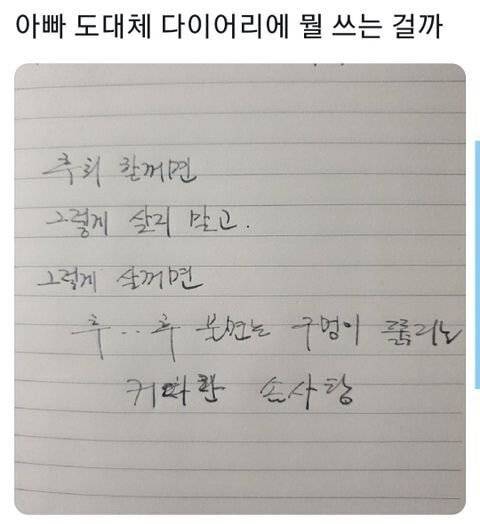 아빠 도대체 다이어리에 뭘 쓰는 걸까
후회 할꺼면
그렇게 살지 말고.
그렇게 살꺼면
후... 후 불면는 구멍이 뚫리는
커다란 솜사탕